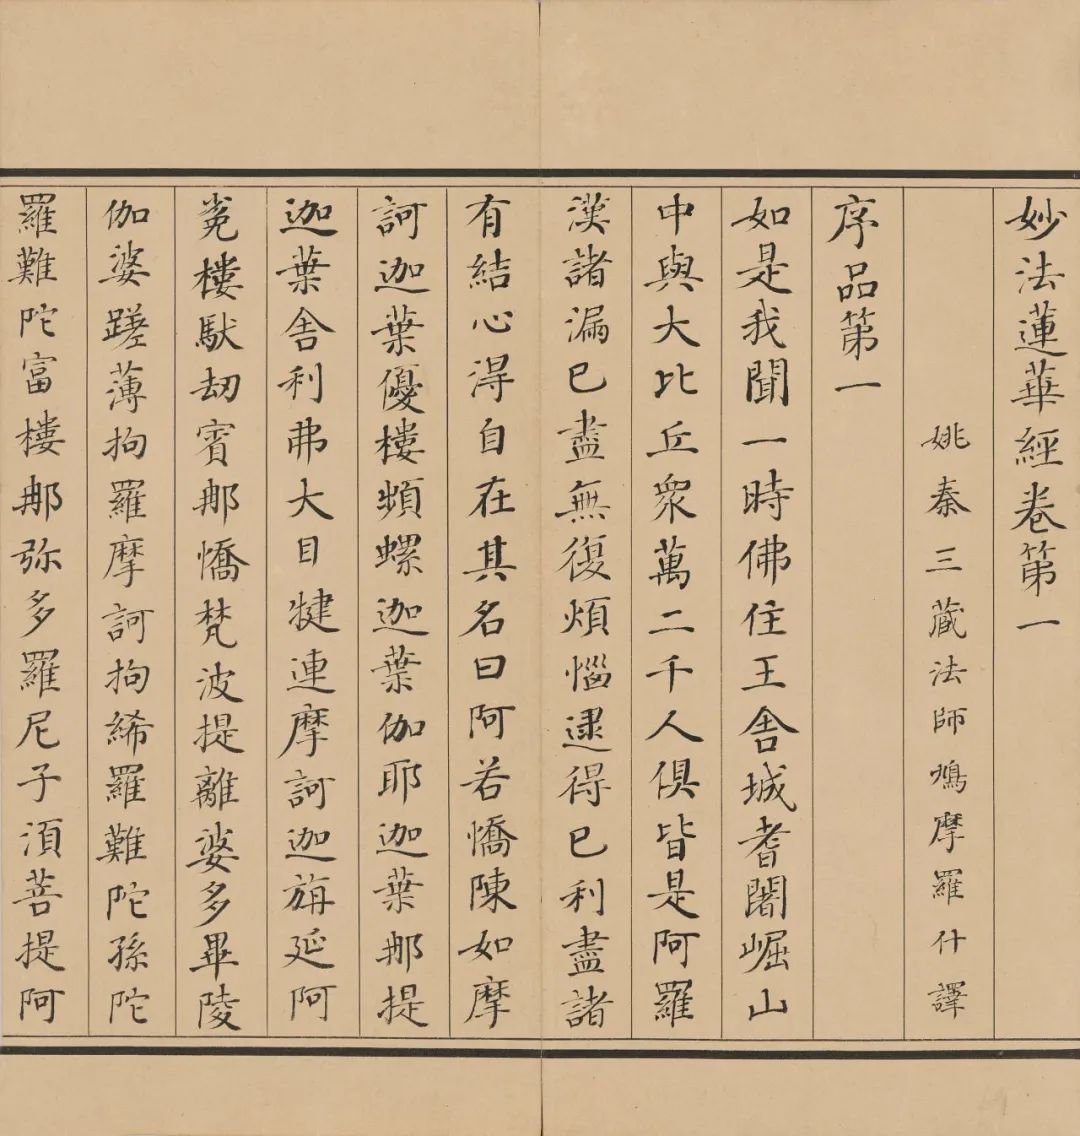 妙法蓮華經卷第一
姚秦三藏法師鳩摩羅什譯
序品第一
如是我聞一時佛住王舍城耆闍崛山
中與大比丘衆萬二千人俱皆是阿羅
漢諸漏已盡無復煩惱逮得已利盡諸
有結心得自在其名曰阿若憍陳如摩
訶迦葉優樓頻螺迦葉伽耶迦葉那提
迦葉舍利弗大目犍連摩訶迦旃延阿
㝹樓馱劫賓那憍梵波提離婆多畢陵
伽婆蹉薄拘羅摩訶拘絺羅難陀孫陀
羅難陀富樓那弥多羅尼子須菩提阿